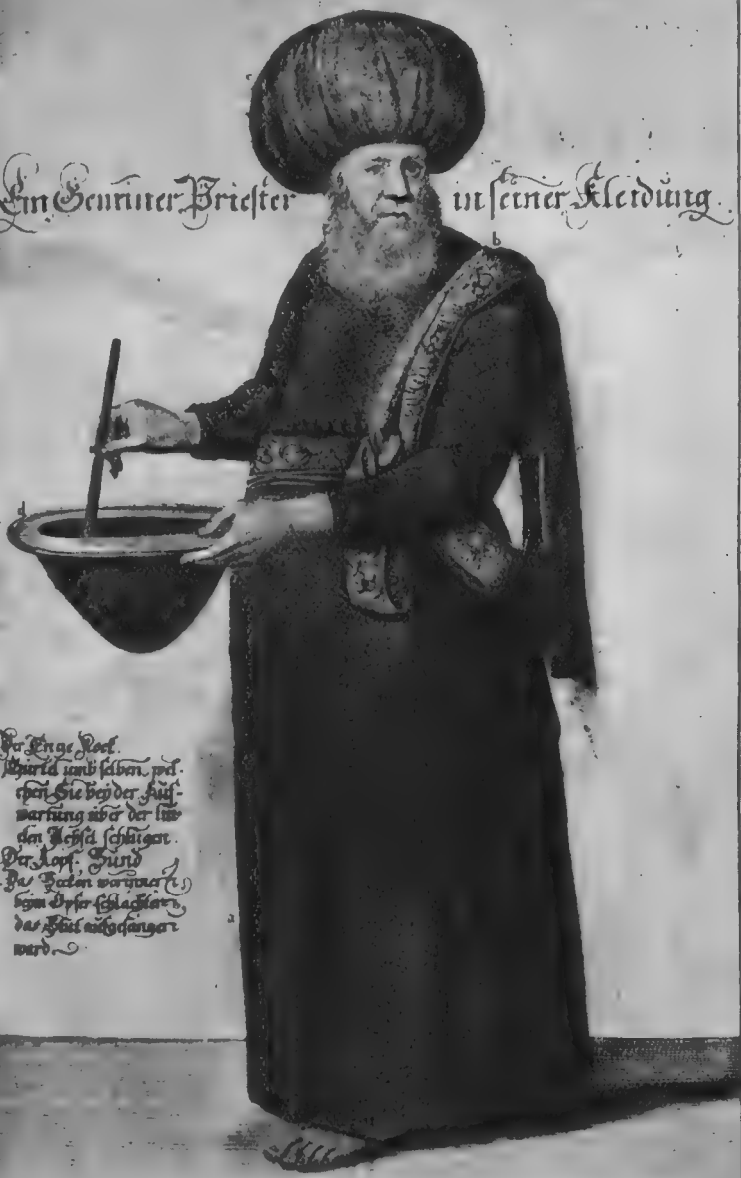 Ein Gemeiner Priester in seiner Kleidung.
c
b
d
Der Enge Rock.
Gürtel umb selben, wel-
chen Sie bey der Auf-
wartung über der lin-
cken Achsel schlugen.
Der Kopf Bund
Das Becken worinnen
beym Opfer schlachten
das Blut aufgefangen
ward.
a